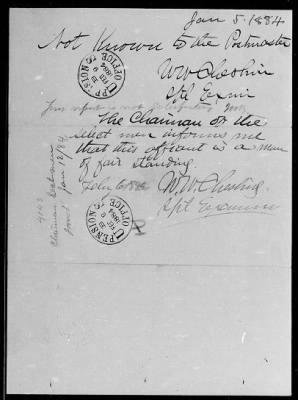 Jan 5. 1884
Not Known to the Postmaster
W W Cheshir
Spl Exmr
is not
The Chairman of the
select men informes me
that this affiant is a man
of fair standing.
Feby 6
W. W. Cheshir
Spl Examiner
Jan 12/84
PENSION OFFICE
FEB 9 1884
PENSION OFFICE
FEB 9 1884